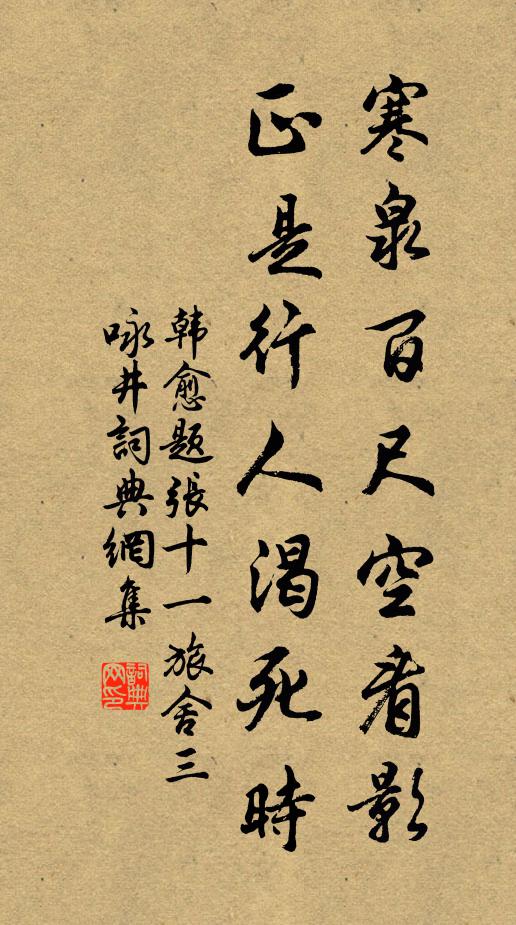 寒泉百尺空看影
正是行人渴死時
韩愈题張十一旅舍三
咏井詞典網集
詞典
网印